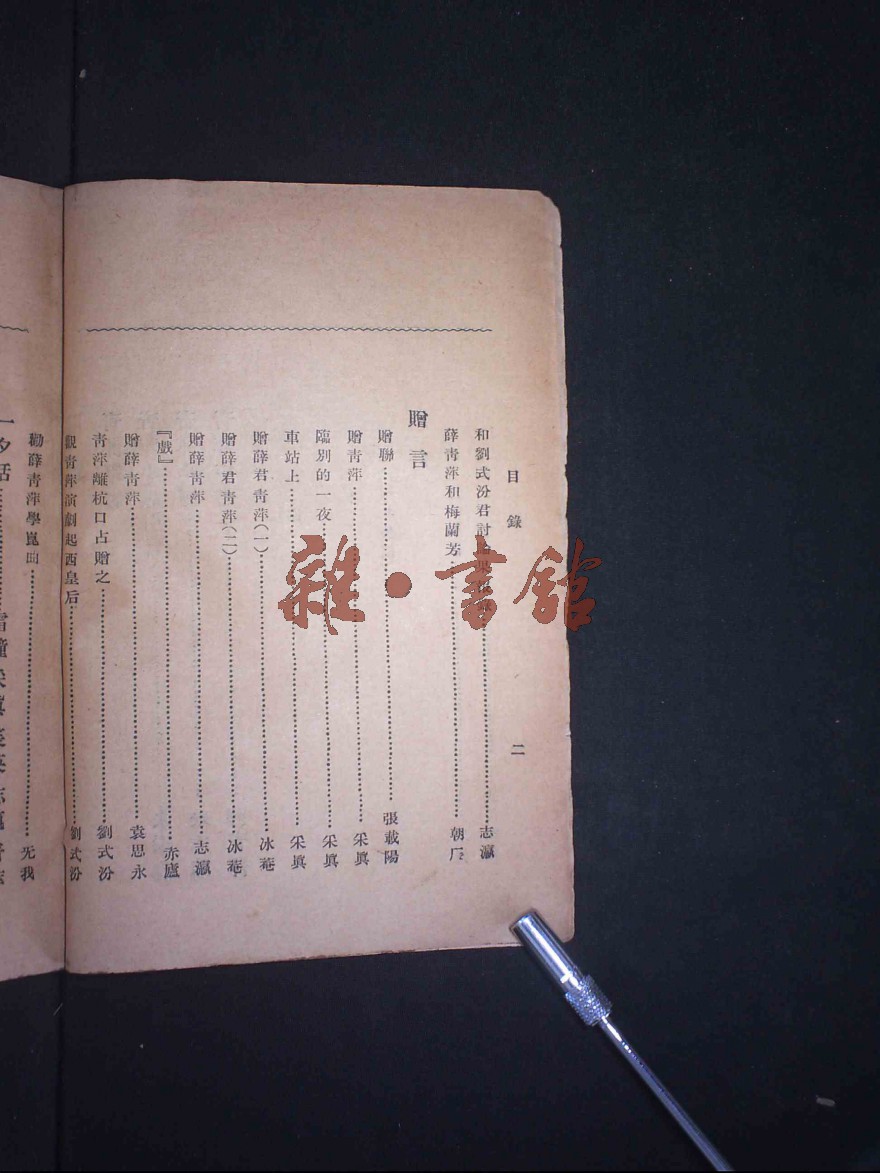 目錄
二
和劉式汾君討……志瀛
薛青萍和梅蘭芳……朝厂
贈言
贈聯……張載陽
贈青萍……采真
臨別的一夜……采真
車站上……采真
贈薛君青萍(一)……冰菴
贈薛君青萍(二)……冰菴
贈薛青萍……志瀛
『戲』……赤廬
贈薛青萍……袁思永
青萍離杭口占贈之……劉式汾
觀青萍演劇起西皇后……劉式汾
勸薛青萍學崑曲……旡我
一夕話……
雜·書館